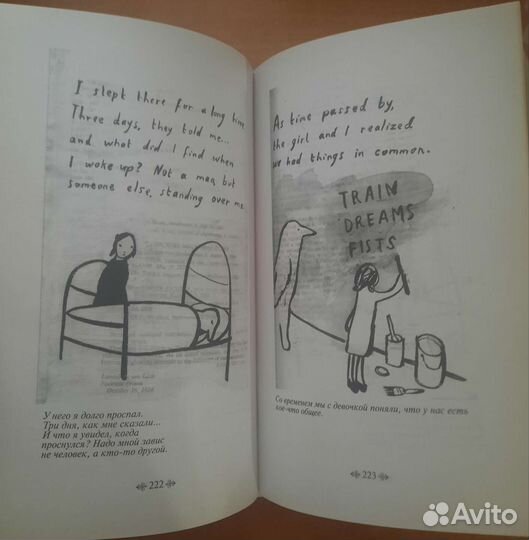 I slept there for a long time
Three days, they told me...
and what did I find when
I woke up? Not a man, but
someone else, standing over me
October 16, 1920
У него я долго проспал.
Три дня, как мне сказали...
И что я увидел, когда
проснулся? Надо мной завис
не человек, а кто-то другой.
222
As time passed by,
the girl and I realized
we had things in common.
TRAIN
DREAMS
FISTS
Со временем мы с девочкой поняли, что у нас есть
кое-что общее.
223
Avito